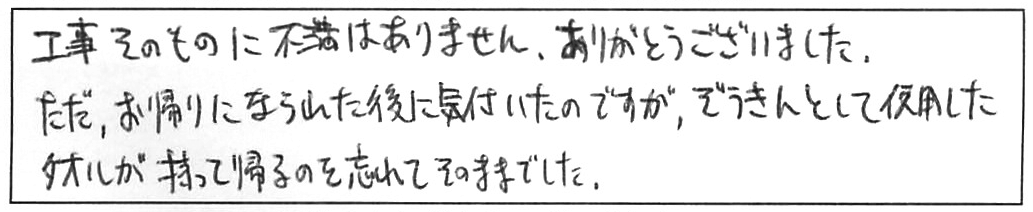 工事そのものに不満はありません、ありがとうございました.
ただ, お帰りになられた後に気付いたのですが, ぞうきんとして使用した
タオルが持って帰るのを忘れてそのままでした.